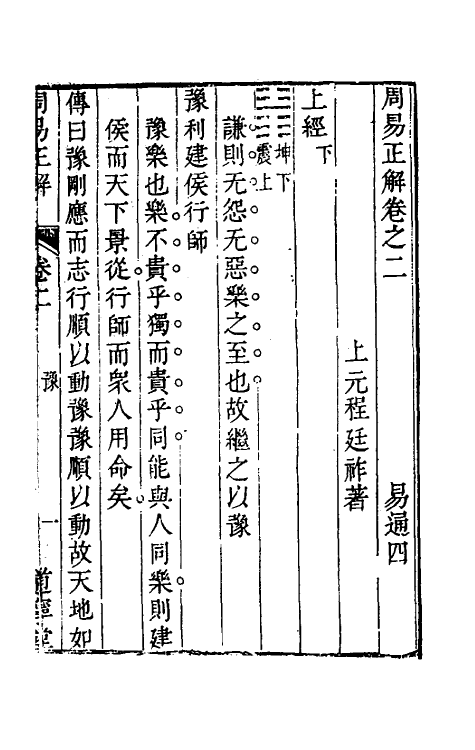 周易正解卷之二　易通四
上元程廷祚著
上經下
坤下
震上
謙則无怨无惡樂之至也故繼之以豫
豫利建侯行師
豫樂也樂不貴乎獨而貴乎同能與人同樂則建
侯而天下景從行師而衆人用命矣
傳曰豫剛應而志行順以動豫豫順以動故天地如
周易正解
卷二
豫
一
道寧堂